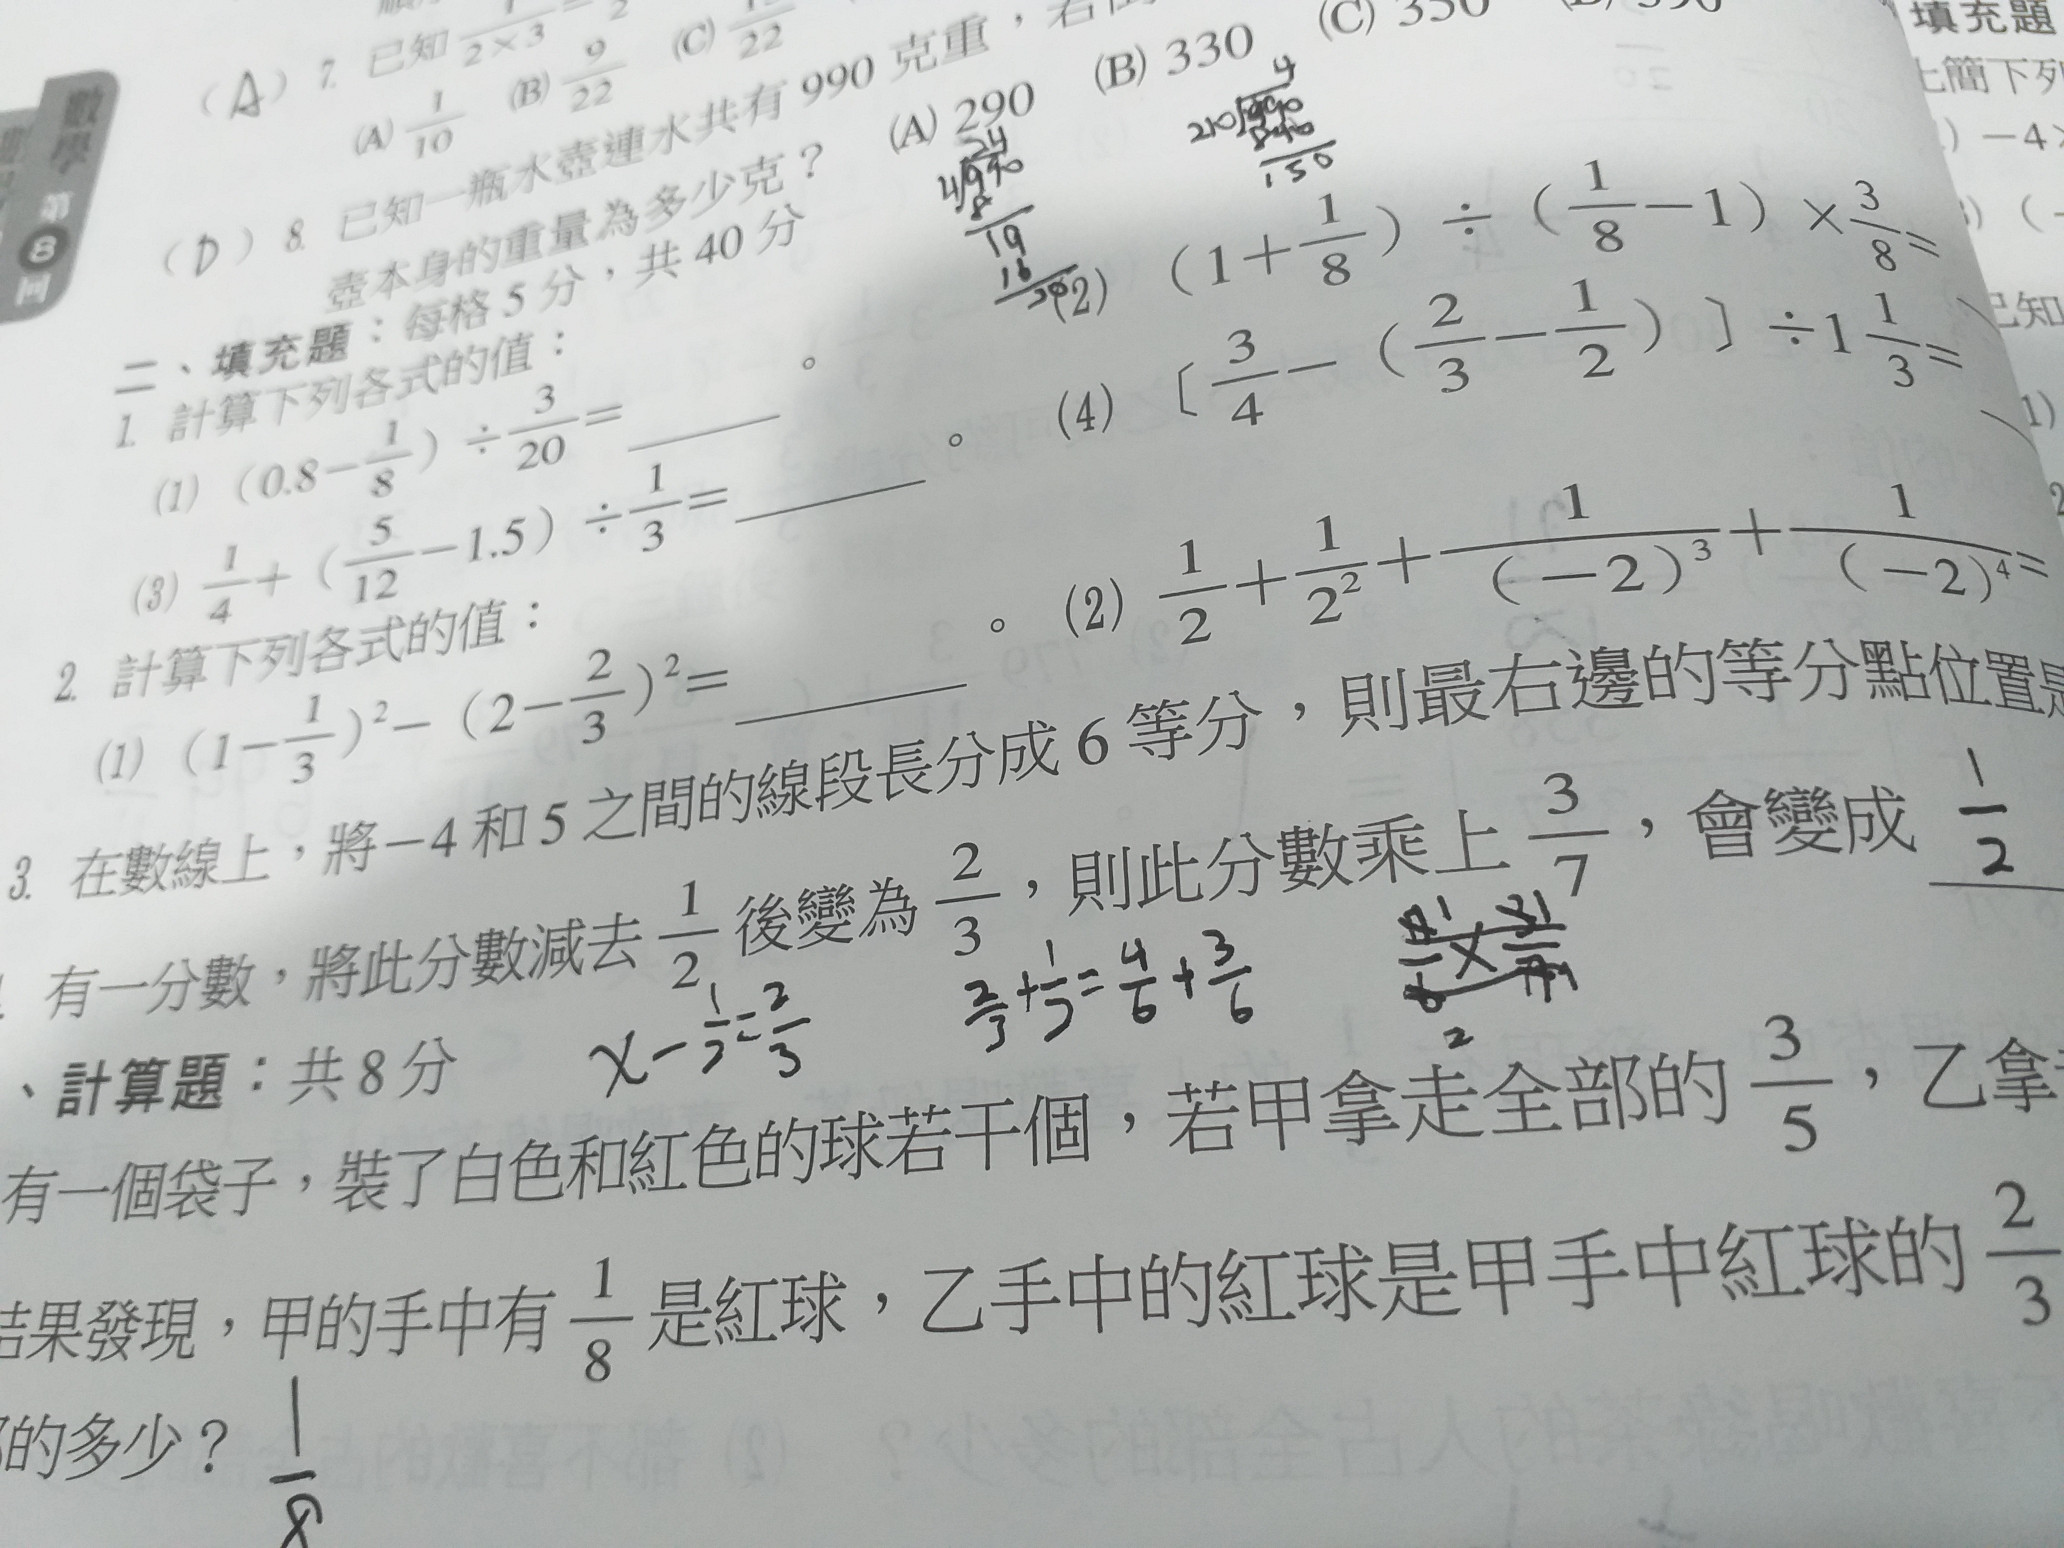 （A）7. 已知 1/(2×3)=
(A) 1/10 (B) 9/22 (C) /22
（D）8. 已知一瓶水壺連水共有 990 克重，若
壺本身的重量為多少克？ (A) 290 (B) 330 (C) 350
24
4)990
8
19
16
30
4
210)990
840
150
二、填充題：每格 5 分，共 40 分
1. 計算下列各式的值：
(1) （0.8－1/8）÷3/20＝______。 (2) （1＋1/8）÷（1/8－1）×3/8＝
(3) 1/4＋（5/12－1.5）÷1/3＝______。 (4) 〔3/4－（2/3－1/2）〕÷1 1/3＝
2. 計算下列各式的值：
(1) （1－1/3）²－（2－2/3）²＝______。 (2) 1/2＋1/2²＋1/（－2）³＋1/（－2）⁴＝
3. 在數線上，將－4 和 5 之間的線段長分成 6 等分，則最右邊的等分點位置是
有一分數，將此分數減去 1/2 後變為 2/3，則此分數乘上 3/7，會變成 1/2
x－1/2＝2/3 2/3＋1/2＝4/6＋3/6
、計算題：共 8 分
有一個袋子，裝了白色和紅色的球若干個，若甲拿走全部的 3/5，乙拿
結果發現，甲的手中有 1/8 是紅球，乙手中的紅球是甲手中紅球的 2/3
的多少？ 1/8
數學 第8回
填充題
簡下列
－4×
已知